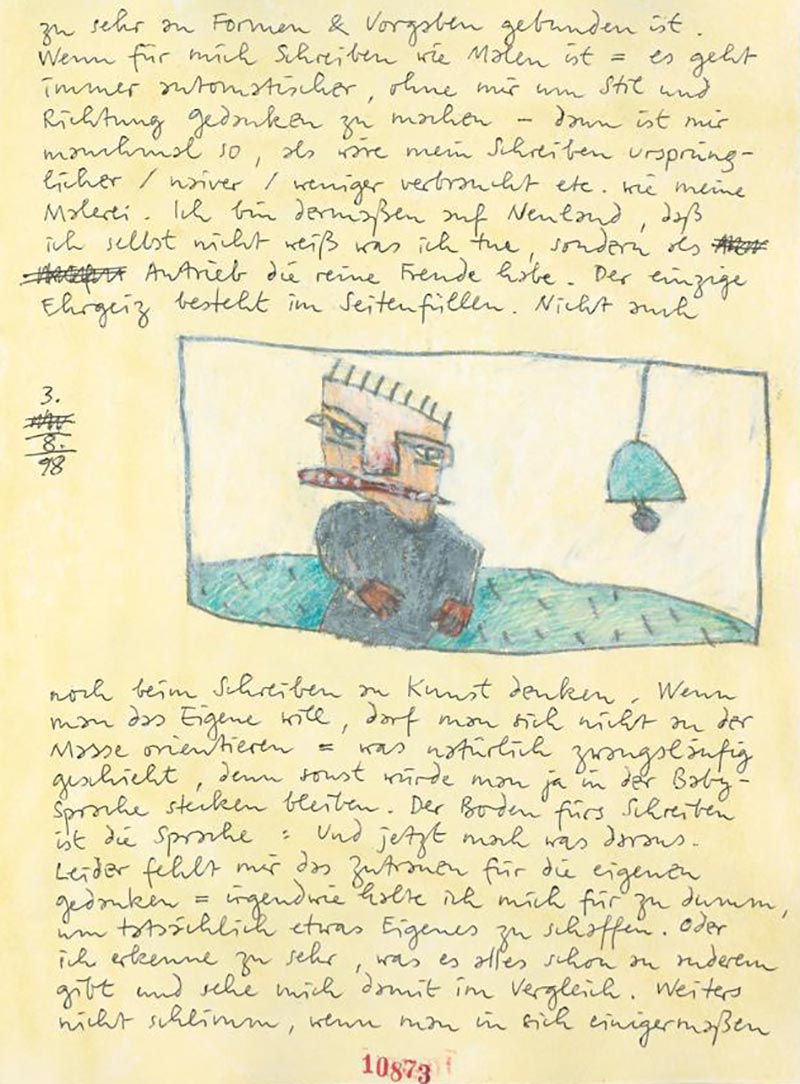 zu sehr an Formen & Vorgaben gebunden ist.
Wenn für mich Schreiben wie Malen ist = es geht
immer automatischer, ohne mir um Stil und
Richtung Gedanken zu machen – dann ist mir
manchmal so, als wäre mein Schreiben ursprüng-
licher / naiver / weniger verbraucht etc. wie meine
Malerei. Ich bin dermaßen auf Neuland, daß
ich selbst nicht weiß was ich tue, sondern als
Antrieb die reine Freude habe. Der einzige
Ehrgeiz besteht im Seitenfüllen. Nicht auch
3.
8.
98
noch beim Schreiben an Kunst denken. Wenn
man das Eigene will, darf man sich nicht an der
Masse orientieren = was natürlich zwangsläufig
geschieht, denn sonst würde man ja in der Baby-
Sprache stecken bleiben. Der Boden fürs Schreiben
ist die Sprache : Und jetzt mach was daraus.
Leider fehlt mir das Zutrauen für die eigenen
gedanken = irgendwie halte ich mich für zu dumm,
um tatsächlich etwas Eigenes zu schaffen. Oder
ich erkenne zu sehr, was es alles schon an anderem
gibt und sehe mich damit im Vergleich. Weiters
nicht schlimm, wenn man in sich einigermaßen
10873